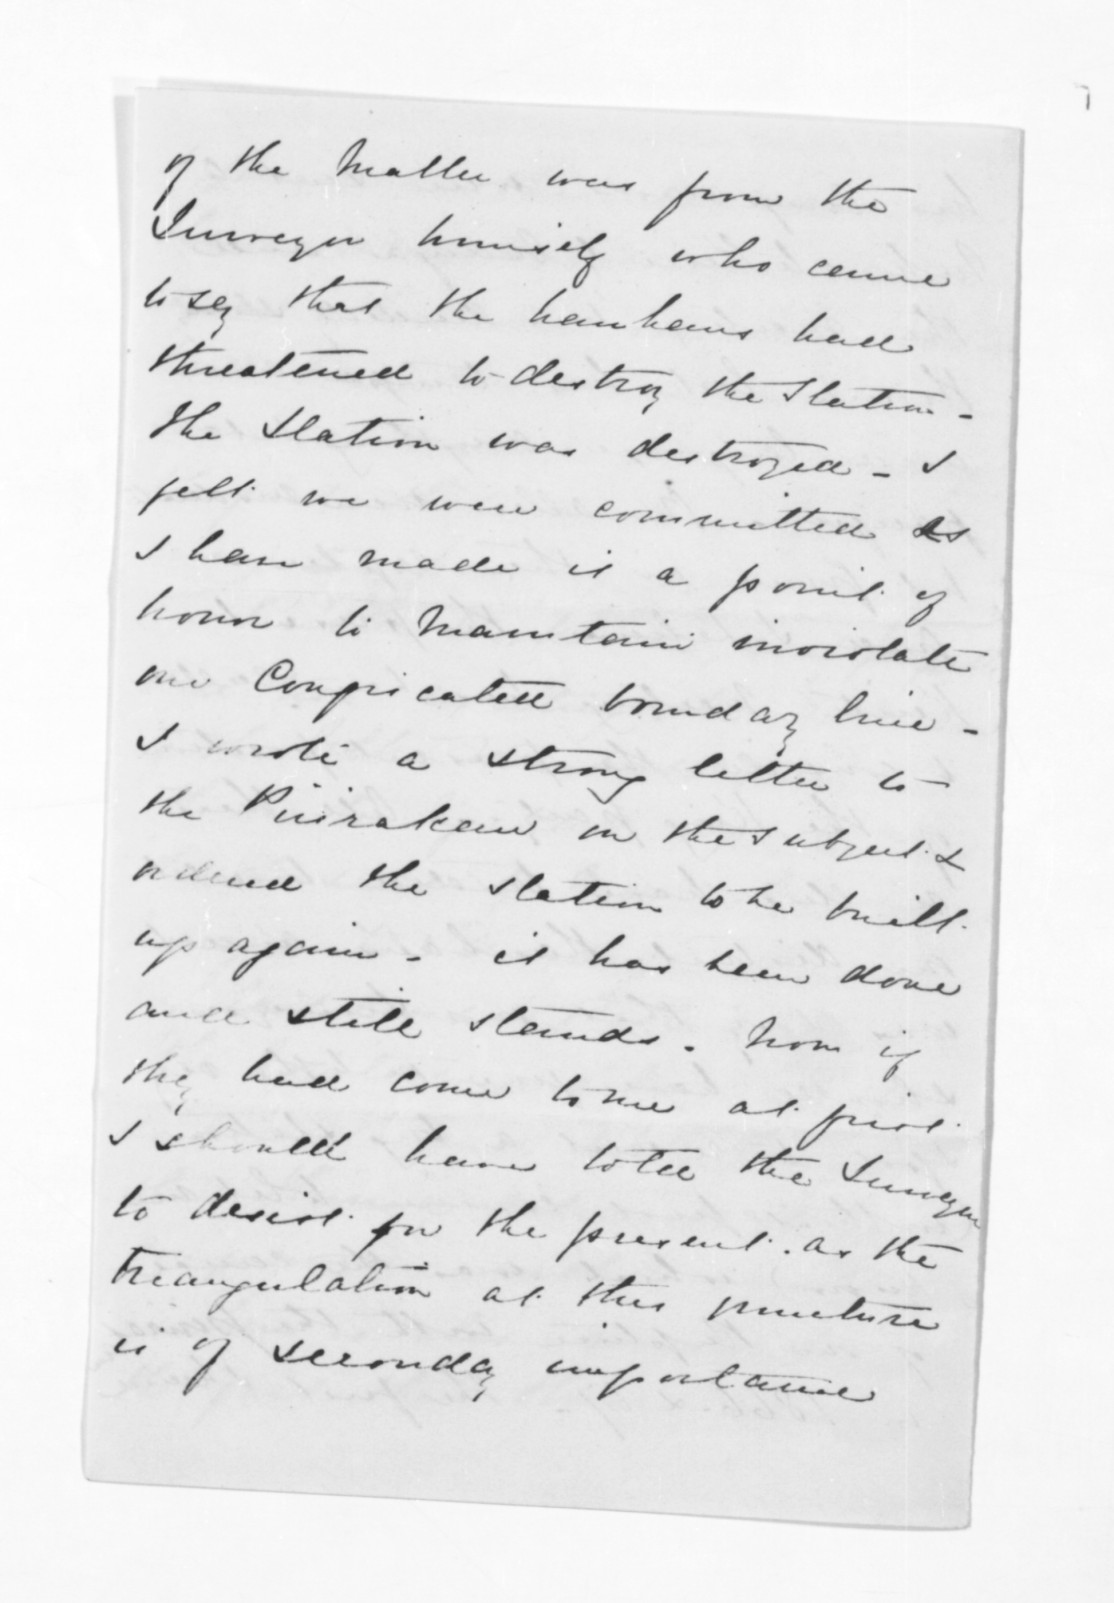 of the Matter was from the
Surveyor himself who came
to say that the hauhaus had
threatened to destroy the Station -
the Station was destroyed - I
felt we were committed as
I have made it a point of
honor to Maintain inviolate
our Confiscated boundary line -
I wrote a strong letter to
the Piirakau on the subject &
ordered the station to be built
up again - it has been done
and still stands. Now if
they had come to me at first
I should have told the Surveyor
to desist for the present. as the
triangulation at this juncture
is of seconday importance